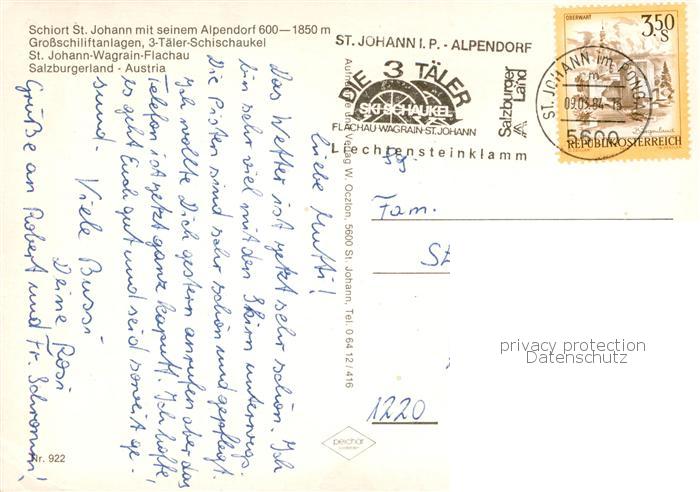 Schiort St. Johann mit seinem Alpendorf 600—1850 m
Großschiliftanlagen, 3-Täler-Schischaukel
St. Johann-Wagrain-Flachau
Salzburgerland - Austria
ST. JOHANN I. P. - ALPENDORF
DIE 3 TÄLER
SKI-SCHAUKEL
FLACHAU-WAGRAIN-ST.JOHANN
Liechtensteinklamm
Salzburger
Land
ST. JOHANN im PONGAU
09.03.84-15
5600
OBERWART
3.50 S
Burgenland
REPUBLIK ÖSTERREICH
Liebe Mutti!
Das Wetter ist jetzt sehr schön. Ich
bin sehr viel mit den Skiern unterwegs.
Die Pisten sind sehr schön und gepflegt.
Ich wollte Dich gestern anrufen aber das
Telefon ist jetzt ganz kaputt. Ich hoffe,
es geht Euch gut und seid soweit ge-
sund. Viele Bussi
Deine Rosi
Grüße an Robert und Fr. Schramm!
Aufnahme und Verlag W. Oczlon, 5600 St. Johann, Tel. 0 64 12 / 416
Fam.
1220
Nr. 922
privacy protection
Datenschutz